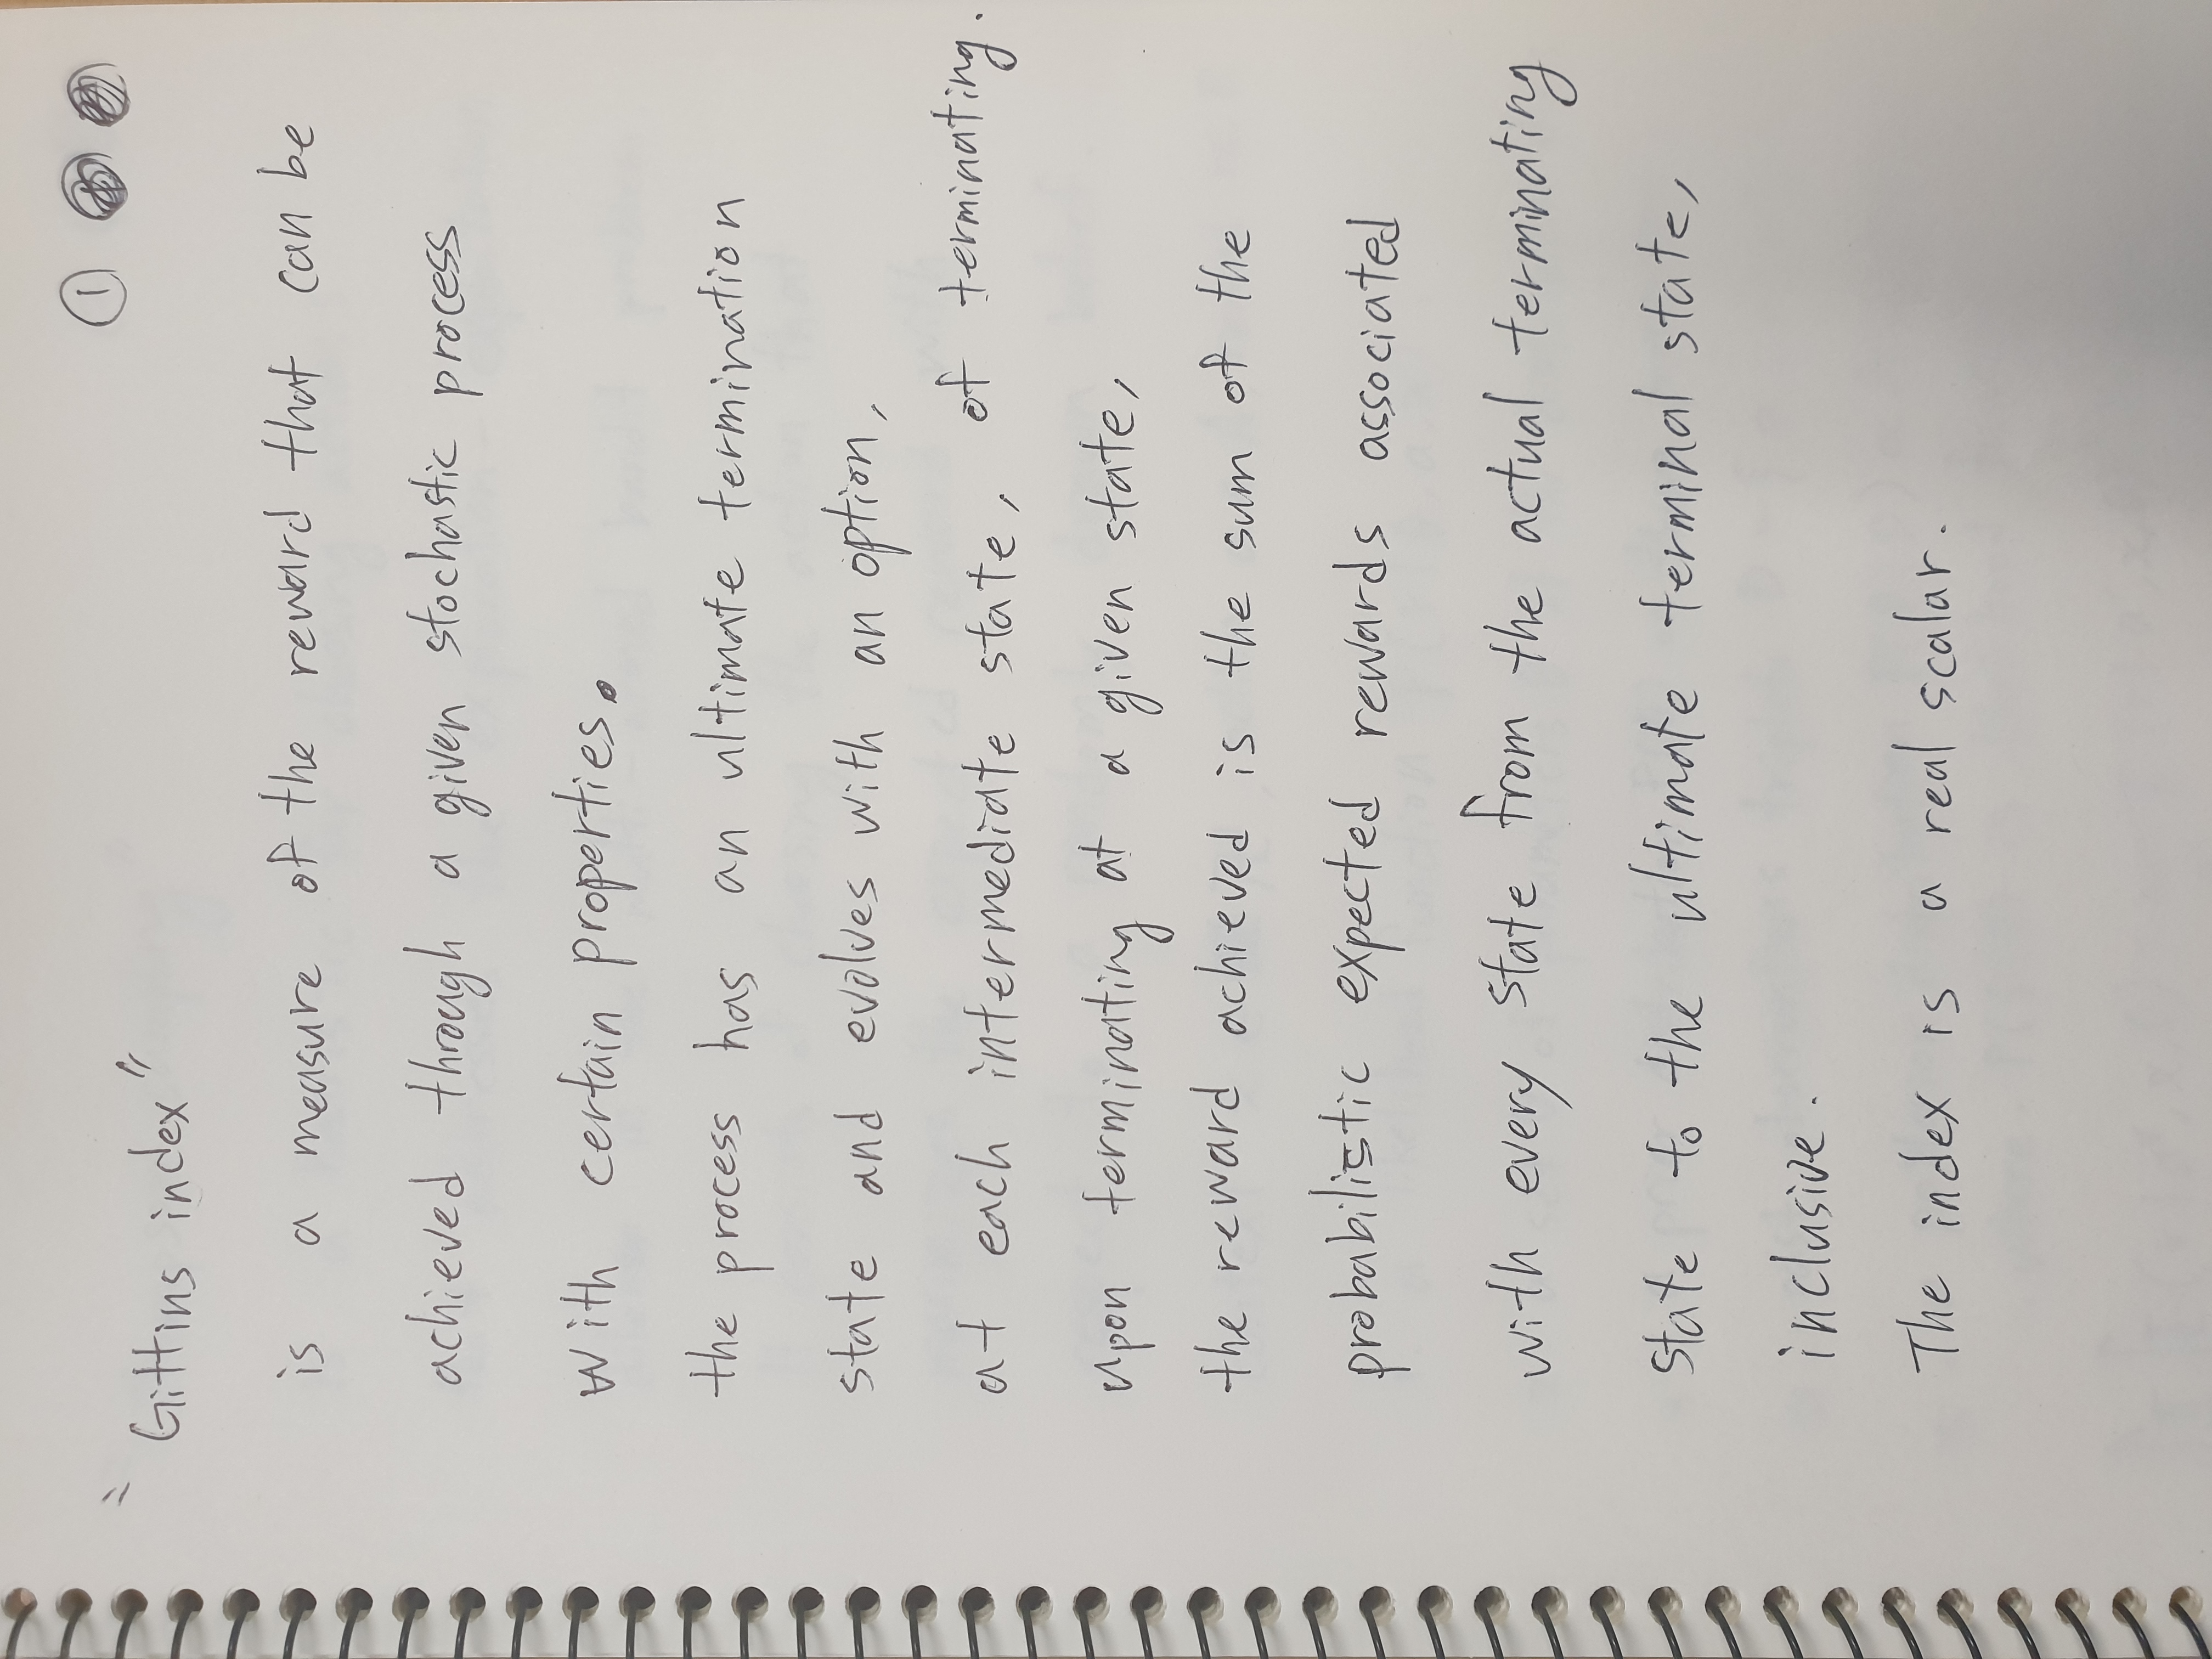 ①
"Gittins index"
is a measure of the reward that can be
achieved through a given stochastic process
with certain properties.
the process has an ultimate termination
state and evolves with an option,
at each intermediate state, of terminating.
upon terminating at a given state,
the reward achieved is the sum of the
probabilistic expected rewards associated
with every state from the actual terminating
state to the ultimate terminal state,
inclusive.
The index is a real scalar.